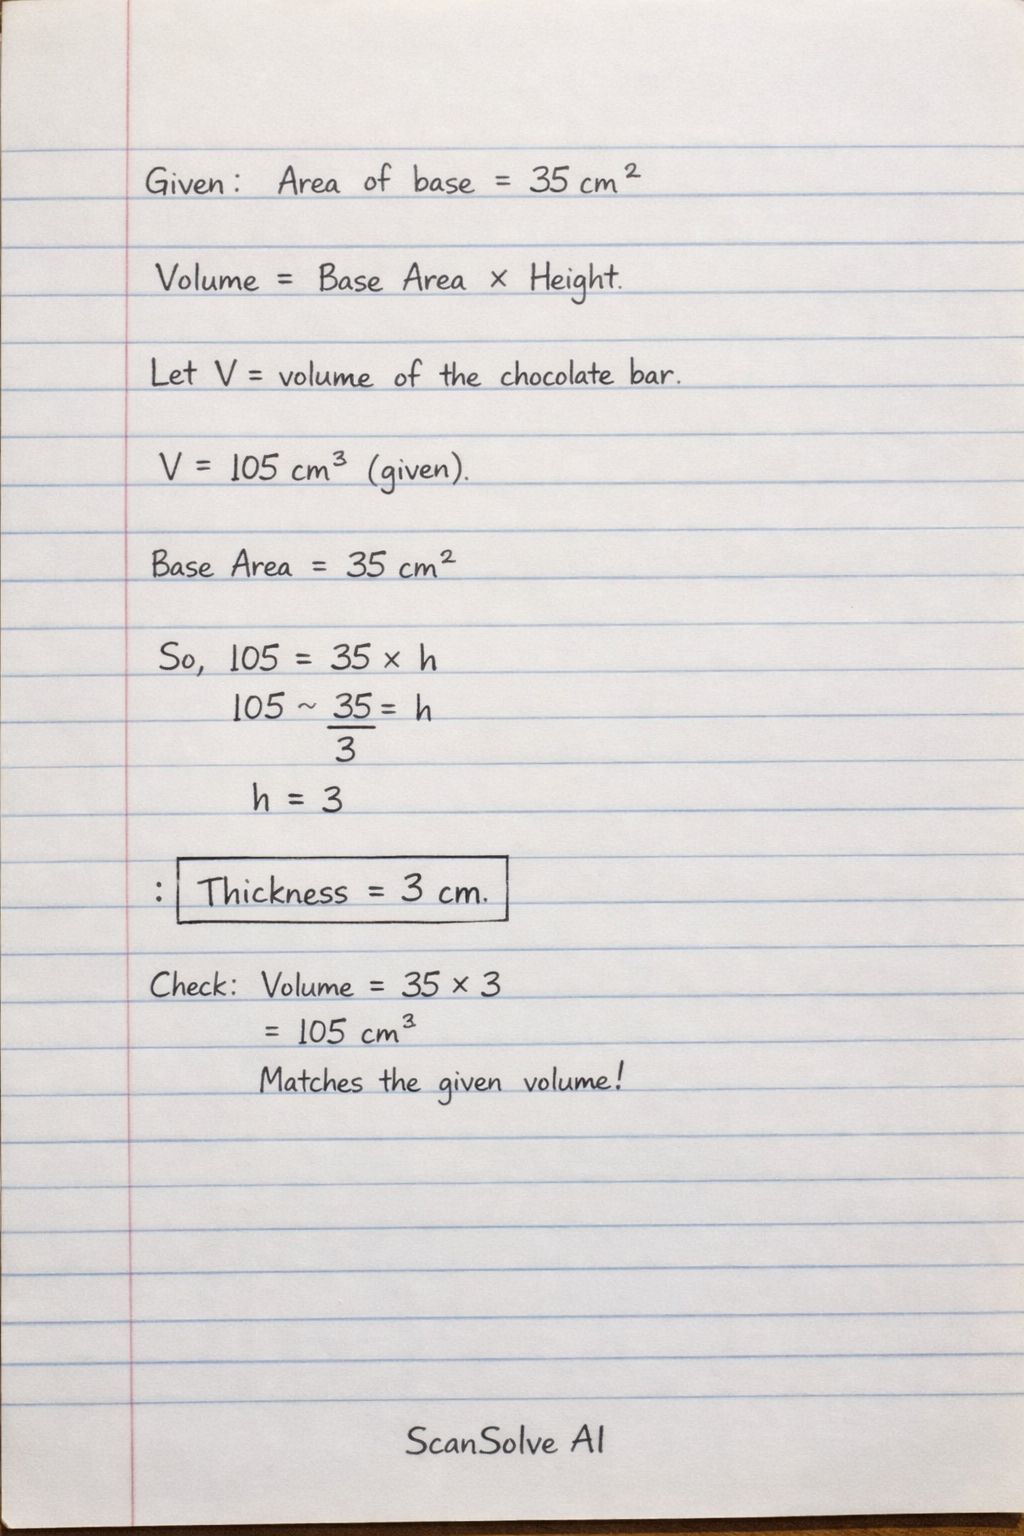 Given: Area of base = 35 cm²
Volume = Base Area × Height.
Let V = volume of the chocolate bar.
V = 105 cm³ (given).
Base Area = 35 cm²
So, 105 = 35 × h
105 ~ 35 = h
3
h = 3
: Thickness = 3 cm.
Check: Volume = 35 × 3
= 105 cm³
Matches the given volume!
ScanSolve AI